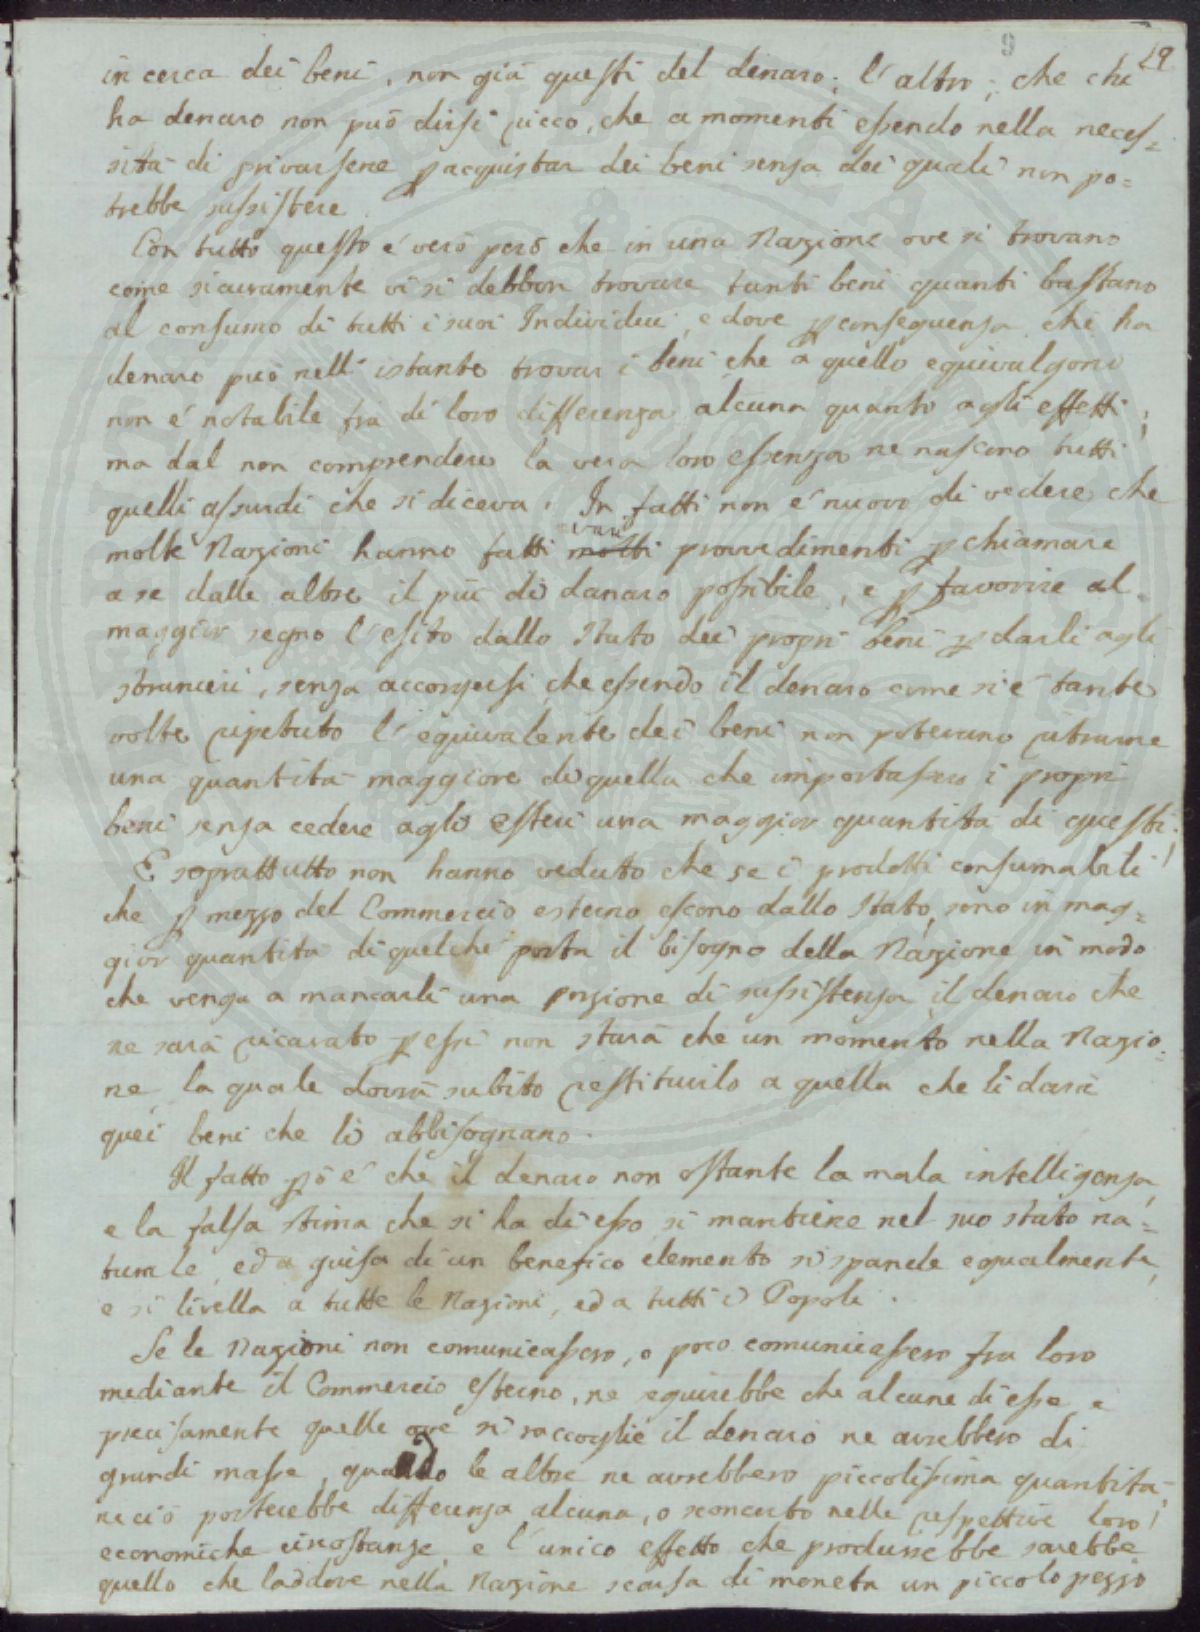 9
29
in cerca dei beni, non già questi del denaro; l'altro; che chi
ha denaro non può dirsi ricco, che a momenti essendo nella neces=
sità di privarsene p acquistar dei beni senza dei quali non po=
trebbe sussistere.
Con tutto questo é vero però che in una Nazione ove si trovano
come sicuramente vi si debbon trovare tanti beni quanti bastano
al consumo di tutti i suoi Individui, e dove p conseguenza chi ha
denaro può nell'istante trovar i beni che a quello equivalgono
non é notabile frà di loro differenza alcuna quanto agli effetti;
ma dal non comprendere la vera loro essenza ne nascono tutti
quelli assurdi che si diceva. In fatti non é nuovo di vedere che
varii
molte Nazioni hanno fatti molti provvedimenti p chiamare
a se dalle altre il più di danaro possibile, e p favorire al
maggior segno l'esito dallo Stato dei propri beni p darli agli
stranieri, senza accorgersi che essendo il denaro come si é tante
volte ripetuto l'equivalente dei beni non potevano ritrarne
una quantità maggiore di quella che importassero i propri
beni senza cedere agli esteri una maggior quantità di questi!
E soprattutto non hanno veduto che se i prodotti consumabili
che p mezzo del Commercio esterno escono dallo Stato, sono in mag=
gior quantità di quelche porta il bisogno della Nazione in modo
che venga a mancarli una porzione di sussistenza, il denaro che
ne sarà ricavato p essi non starà che un momento nella Nazio=
ne, la quale dovrà subito restituirlo a quella che li darà
quei beni che li abbisognano.
Il fatto pò é che il denaro non ostante la mala intelligenza,
e la falsa stima che si ha di esso si mantiene nel suo stato na=
turale, ed a guisa di un benefico elemento si spande egualmente,
e si livella a tutte le Nazioni, ed a tutti i Popoli.
Se le Nazioni non comunicassero, o poco comunicassero fra loro
mediante il Commercio esterno, ne seguirebbe che alcune di esse e
precisamente quelle ove si raccoglie il denaro ne avrebbero di
grandi masse, quando le altre ne avrebbero piccolissima quantità,
ne ciò porterebbe differenza alcuna, o sconcerto nelle respettive loro
economiche circostanze, e l'unico effetto che produrrebbe sarebbe
quello che laddove nella Nazione scarsa di moneta un piccolo pezzo